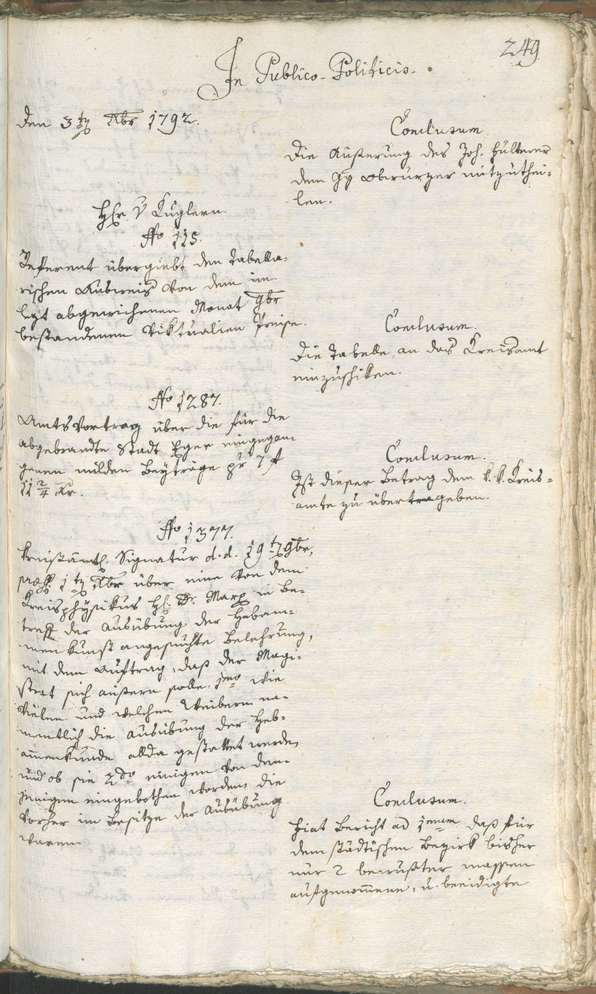 249
In Publico-Politicis.
den 3ten Xbr 1792.
Conclusum
die Äußerung des Joh. Hulterer
dem Hr Obrurzer mitzuthei-
len.
H. v Kuglern.
No 115.
Referent übergiebt den tabella-
rischen Ausweis von dem im
lezt abgewichenen Monat 9br
bestandenen Viktualien Preise.
Conclusum.
die Tabelle an das Kreisamt
einzuschiken.
No 1287.
Amtsvortrag über die für die
abgebrandte Stadt Eger eingegan-
genen milden Beyträge pr 7 f
11 2/4 xr.
Conclusum.
Ist dieser Betrag dem k. k. Kreis-
amte zu übertragen.
No 1377.
Kreisämtl. Signatur d. d. 19t 9br,
praes. 1t Xbr über eine von dem
Kreisphysikus H. D. Marx in be-
treff der Ausübung der Hebam-
menkunst angesuchte Belehrung,
mit dem Auftrag, daß der Magi-
strat sich äußern solle, 1mo wie
vielen und welchen Weibern na-
mentlich die Ausübung der Heb-
ammenkunde allda gestattet werden
und ob sie 2do einigen von dem-
jenigen eingebothen worden, die
vorher im Besitze der Ausübung
waren.
Conclusum.
Fiat Bericht ad 1mum daß für
dem städtischen Bezirk bisher
nur 2 bewußter massen
aufgenommene, u. beeidigte